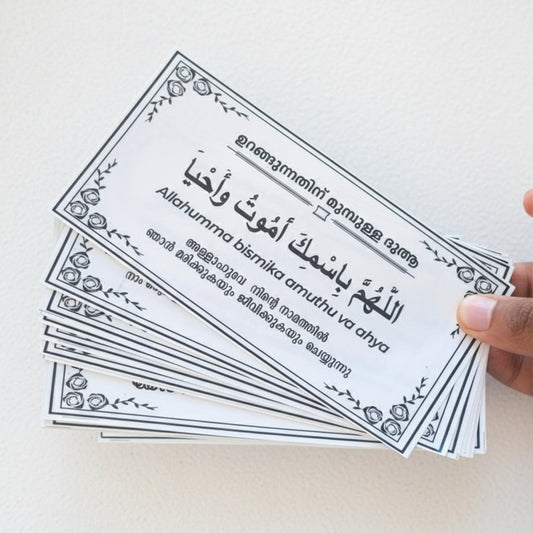 ഉറങ്ങുന്നതിന് മുമ്പുള്ള ദുആ
اللّٰهُمَّ بِاسْمِكَ أَمُوتُ وَأَحْيَا
Allahumma bismika amuthu va ahya
അള്ളാഹുവേ നിന്റെ നാമത്തിൽ
ഞാൻ മരിക്കുകയും ജീവിക്കുകയും ചെയ്യുന്നു
നാം